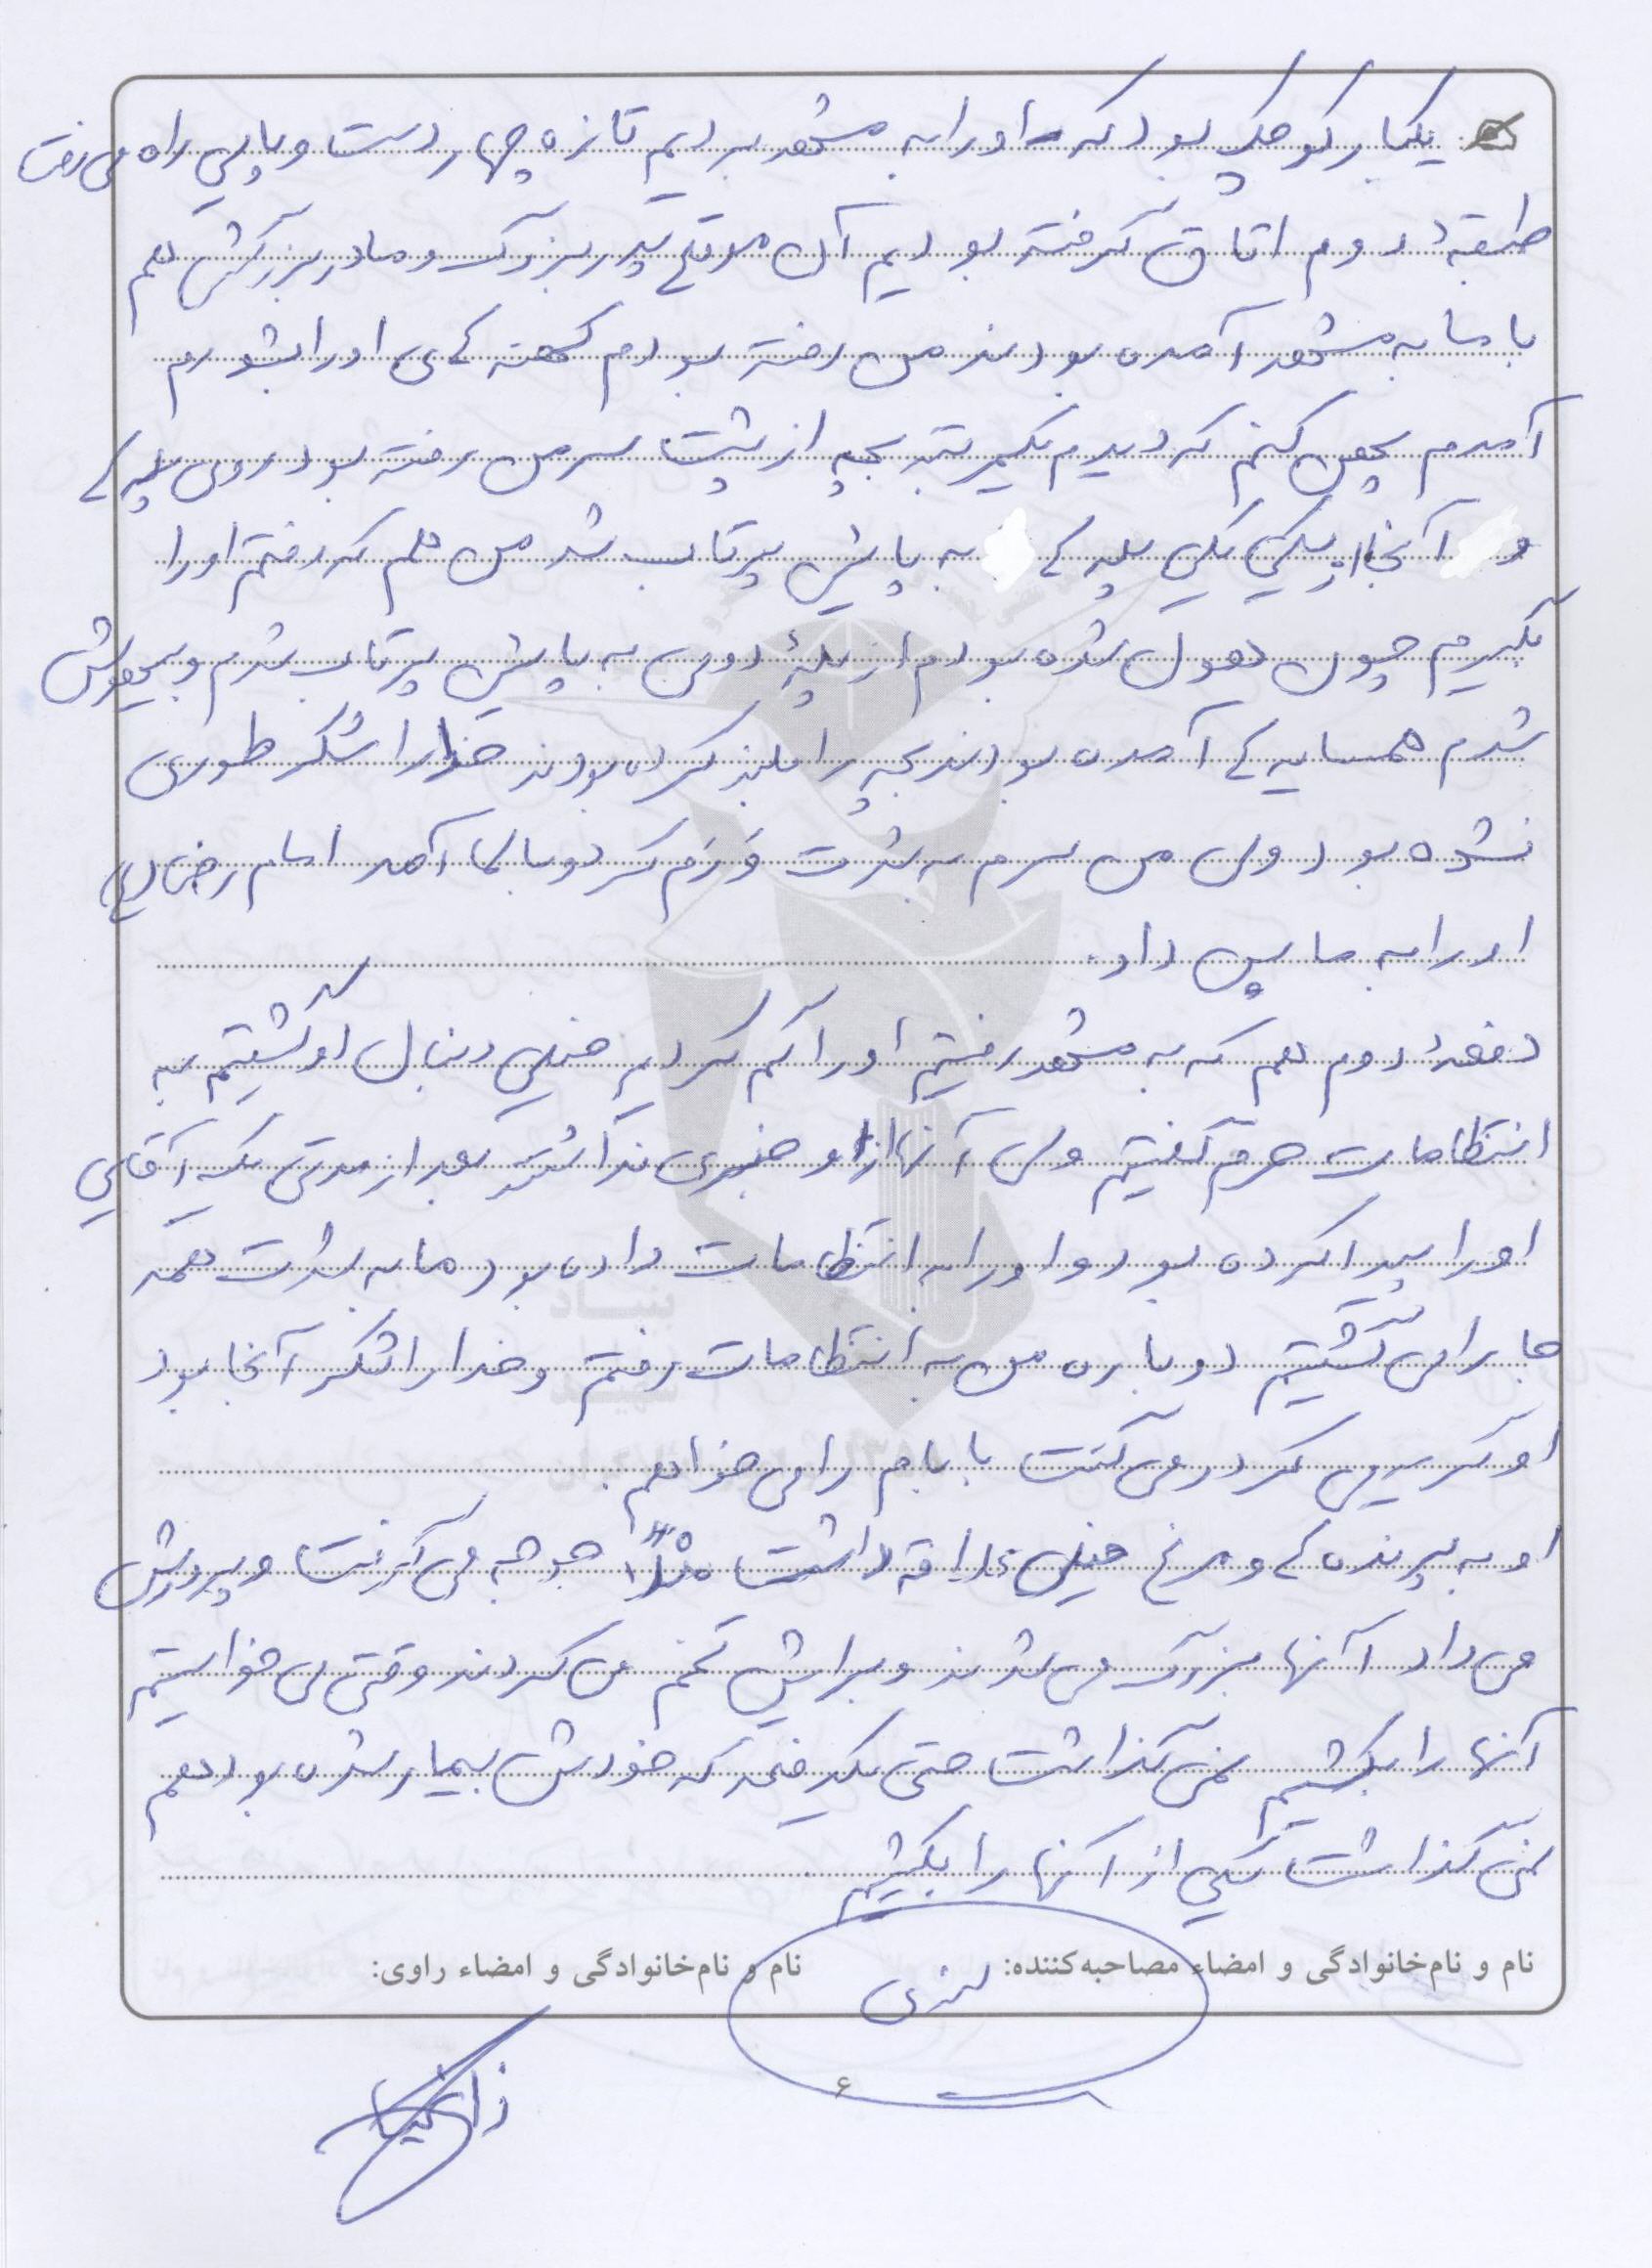 یکبار کوچک بود که او را به مشهد بردیم تازه چهار دست و پایی راه می رفت
طبقهٔ دوم اتاق گرفته بودیم آن موقع پدربزرگ و مادربزرگش هم
با ما به مشهد آمده بودند من رفته بودم کهنه های او را بشورم
آمدم پهن کنم که دیدم یکمرتبه بچه از پشت سر من رفته بود روی پله ها
و آنجا از یکی یکی پله ها به پایین پرتاب شد من هم که رفتم او را
بگیرم چون هول شده بودم از پلهٔ دومی به پایین پرتاب شدم و بیهوش
شدم همسایه ها آمده بودند بچه را بلند کرده بودند خدا را شکر طوری
نشده بود ولی من سرم به شدت ورم کرد و بالا آمد امام رضا (ع)
او را به ما پس داد.
دفعهٔ دوم هم که به مشهد رفتیم او را گم کردیم خیلی دنبال او گشتیم به
انتظامات حرم گفتیم ولی آنها از او خبری نداشتند بعد از مدتی یک آقایی
او را پیدا کرده بود و او را به انتظامات داده بود ما به شدت همه
جا را می گشتیم دوباره من به انتظامات رفتم و خدا را شکر آنجا بود
او گریه می کرد و می گفت بابام را می خواهم.
او به پرنده ها و مرغ خیلی علاقه داشت مثلاً جوجه می گرفت و پرورش
می داد آنها بزرگ می شدند و برایش تخم می کردند وقتی می خواستیم
آنها را بکشیم نمی گذاشت حتی یکدفعه که خودش بیمار شده بود هم
نمی گذاشت یکی از آنها را بکشیم
نام و نام‌خانوادگی و امضاء مصاحبه‌کننده: نام و نام‌خانوادگی و امضاء راوی:
۶